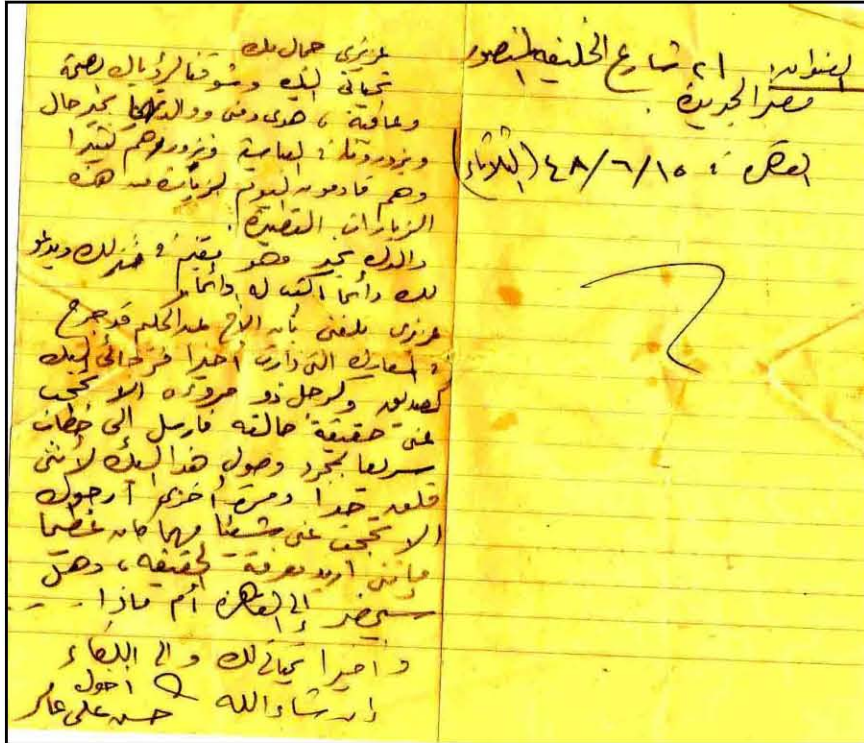 العنوان: ٢١ شارع الخليفة المنصور
مصر الجديدة.
القاهرة في ٤٨/٦/١٥ (الثلاثاء)
عزيزي جمال بك
تحياتي اليك وشوقنا لرؤياك بصحة
وعافية، هدى ومنى ووالدتها بخير حال
ويزورونا في العباسية ونزورهم كثيرا
وهم قادمون اليوم لزيارة من هذه
الزيارات القصيرة.
والدك بخير وهو مقيم في منزلك ويدعو
لك دائما اكتب له دائما
عزيزي بلغني بأن الأخ عبد الحكيم قد جرح
في المعارك التى دارت أخيرا فرجائى اليك
كصديق وكرجل ذو مروءه الا تحجب
عنى حقيقة حالته فارسل الى خطاب
سريعا بمجرد وصول هذا اليك لأننى
قلق جدا ومرة أخرى أرجوك
الا تحجب عنى شيئا مهما كان عظيما
فإننى اريد معرفة الحقيقه، وهل
سيحضر إلى القاهرة أم ماذا...
وأخيرا تحياتى لك والى اللقاء
إن شاء الله
اخوك
حسن على عامر